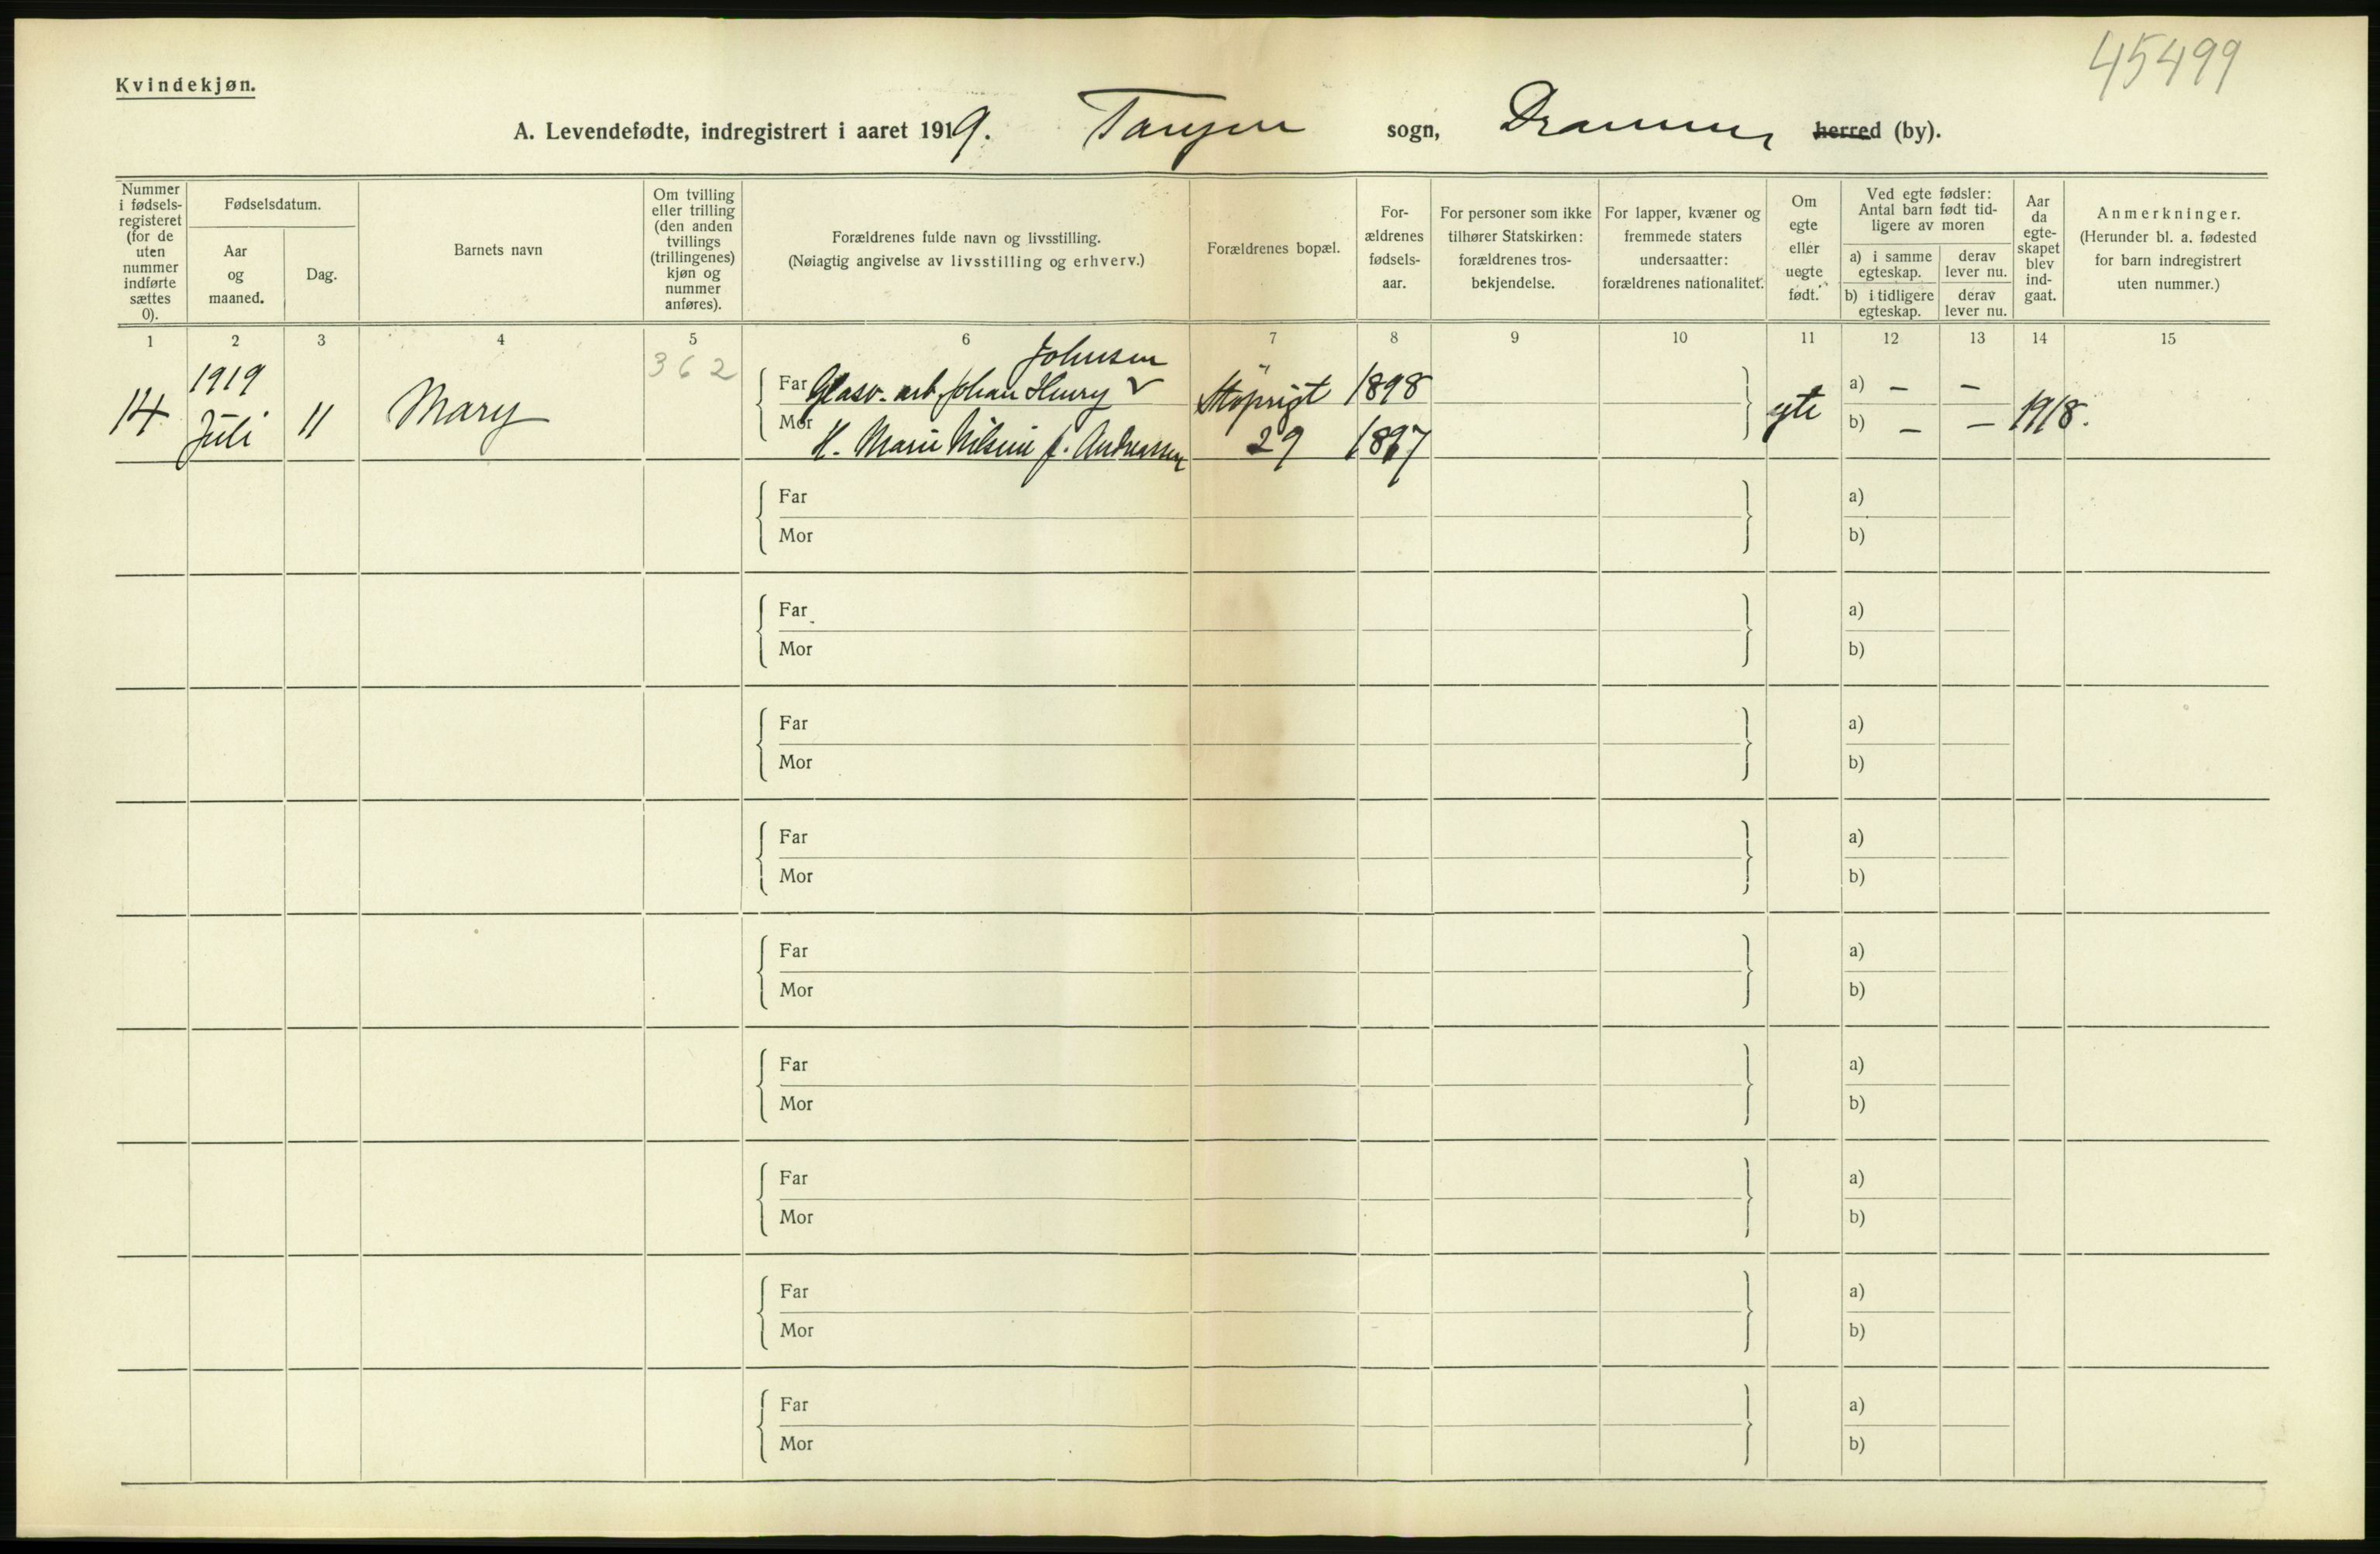 45499
Kvindekjøn.
A. Levendefødte, indregistrert i aaret 1919. Tangen sogn, Drammen herred (by).
Nummer i fødsels-registeret (for de uten nummer indførte sættes 0).
Fødselsdatum.
Aar og maaned.
Dag.
Barnets navn
Om tvilling eller trilling (den anden tvillings (trillingenes) kjøn og nummer anføres).
Forældrenes fulde navn og livsstilling.
(Nøiagtig angivelse av livsstilling og erhverv.)
Forældrenes bopæl.
For-ældrenes fødsels-aar.
For personer som ikke tilhører Statskirken: forældrenes tros-bekjendelse.
For lapper, kvæner og fremmede staters undersaatter: forældrenes nationalitet.
Om egte eller uegte født.
Ved egte fødsler: Antal barn født tid-ligere av moren
a) i samme egteskap.
derav lever nu.
b) i tidligere egteskap.
derav lever nu.
Aar da egte-skapet blev ind-gaat.
Anmerkninger.
(Herunder bl. a. fødested for barn indregistrert uten nummer.)
1 2 3 4 5 6 7 8 9 10 11 12 13 14 15
362
Johnsen
14 1919 Juli 11 Mary
Far Glasv. arb. Johan Henry 1898
Mor H. Marie Nilsine f. Andreassen 29 1897
egte a) – – b) – – 1918.
Far a)
Mor b)
Far a)
Mor b)
Far a)
Mor b)
Far a)
Mor b)
Far a)
Mor b)
Far a)
Mor b)
Far a)
Mor b)
Far a)
Mor b)
Far a)
Mor b)